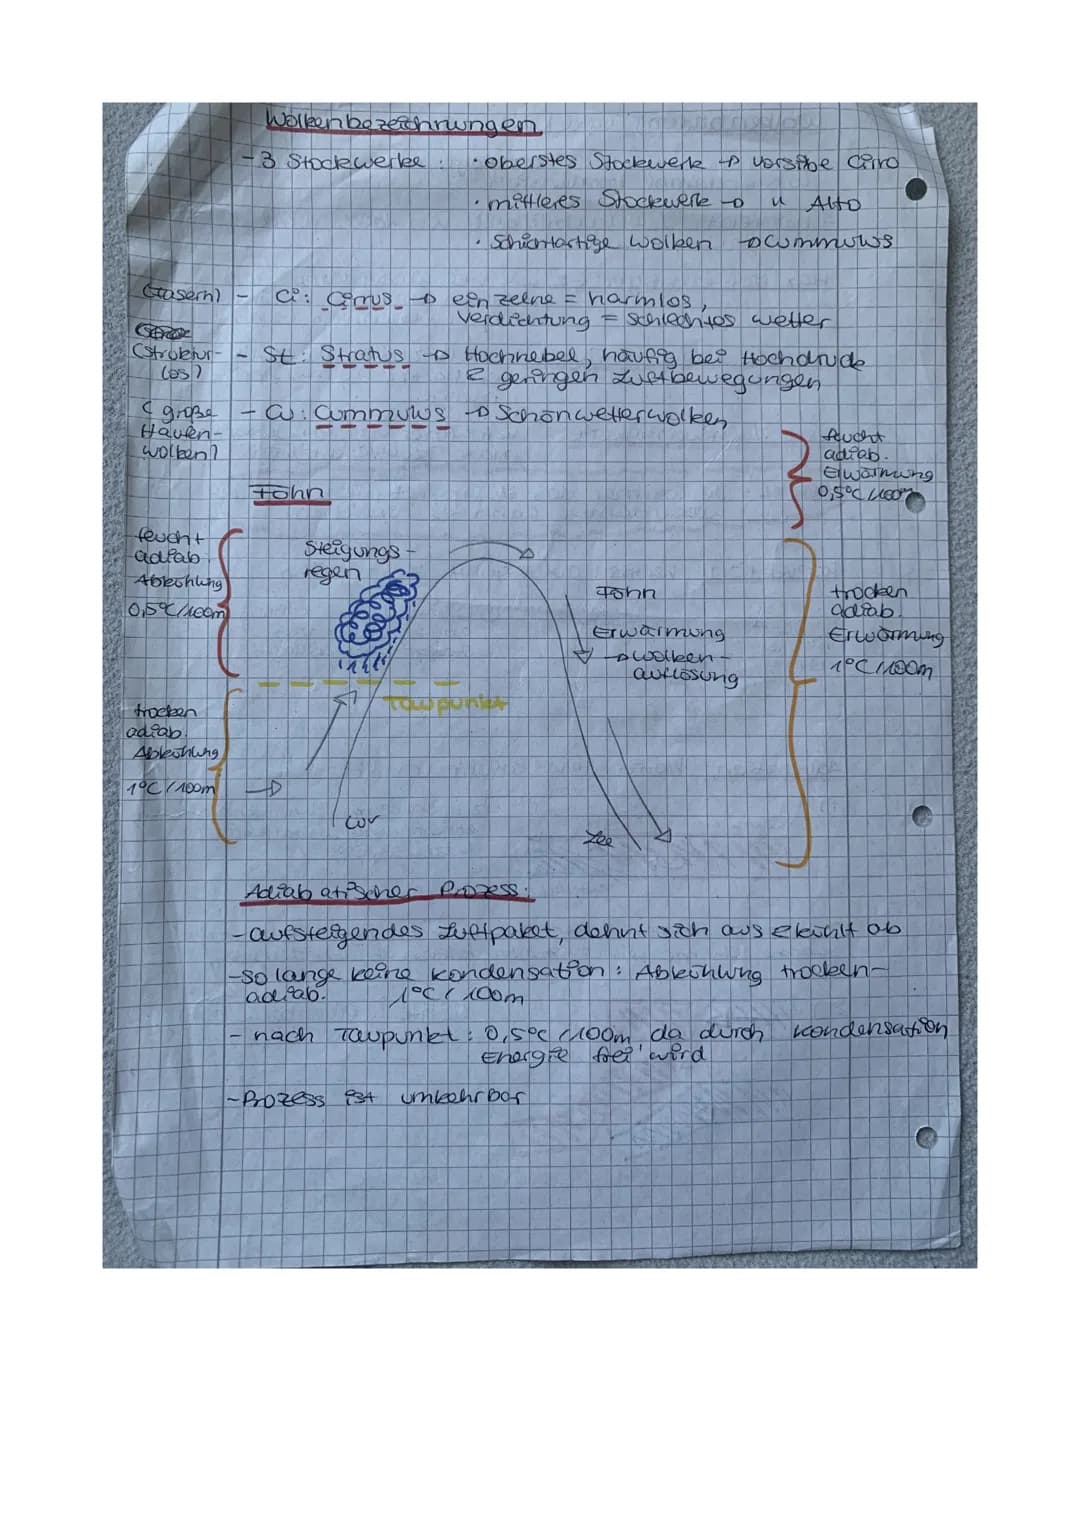 Wolkenbezeichnungen
- 3 Stockwerke : · oberstes Stockwerk → vorsibe Cirro
· mittleres Stockwerk → " Alto
· Schichtartige Wolken → Cummulus
(Fasern) - Ci: Cirrus → einzelne = harmlos,
Verdichtung = schlechtes wetter
(Struktur- - St: Stratus → Hochnebel, häufig bei Hochdruck
los) & geringen Luftbewegungen
(große - Cu: Cummulus → Schönwetterwolken
Haufen-
wolken)
feucht
adiab.
Erwärmung
0,5°C/100m
Föhn
feucht
adiab.
Abkühlung
0,5°C/100m
Steigungs-
regen
Föhn
Erwärmung
→ Wolken-
auflösung
trocken
adiab.
Erwärmung
1°C/100m
Taupunkt
trocken
adiab.
Abkühlung
1°C/100m
Luv
Lee
Adiabatischer Prozess:
- aufsteigendes Luftpaket, dehnt sich aus & kühlt ab
- so lange keine kondensation : Abkühlung trocken-
adiab. 1°C/100m
- nach Taupunkt : 0,5°C/100m, da durch kondensation
Energie frei wird
- Prozess ist umkehrbar